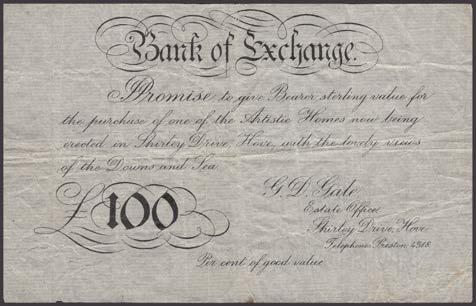 Bank of Exchange.
I Promise to give Bearer sterling value for
the purchase of one of the Artistic Homes now being
erected in Shirley Drive, Hove, with the lovely views
of the Downs and Sea.
G. D. Gale
Estate Office
Shirley Drive, Hove
Telephone Preston 4318.
£100
Per cent of good value